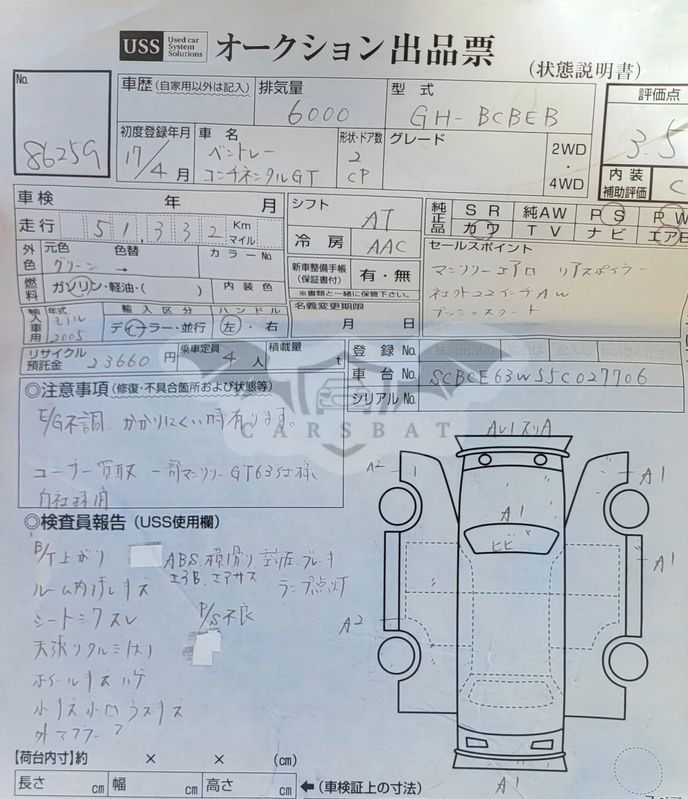 USS Used car System Solutions オークション出品票 (状態説明書)
No. 86259
車歴 (自家用以外は記入) 排気量 6000 型式 GH-BCBEB 評価点 3.5
初度登録年月 17/4月 車名 ベントレー コンチネンタルGT 形状・ドア数 2 CP グレード 2WD・4WD 内装補助評価 C
車検 年 月 シフト AT 純正品 SR 純AW PS PW
走行 51,332 Km マイル 冷房 AAC カワ TV ナビ エアB
外色 元色 グリーン 色替 → カラーNo. 新車整備手帳 (保証書付) 有・無 ※書類と一緒に保管下さい。 セールスポイント
燃料 ガソリン・軽油・( ) 内装色 名義変更期限 月 日 マンソリーエアロ リアスポイラー
輸入車用 年式 モデル 2005 輸入区分 ディーラー・並行 ハンドル 左・右 22インチAW
プッシュスタート
リサイクル預託金 23660円 乗車定員 4人 積載量 t 登録No.
車台No. SCBCE63W55C027706
シリアルNo.
◎注意事項 (修復・不具合箇所および状態等)
E/G不調、かかりにくい時有ります。
コーナー買取 一部マンソリーGT63仕様、
自社採用
CARSBAT
◎検査員報告 (USS使用欄)
B/T上がり ABS 横滑り 空圧 ブレーキ
エアB エアサス ランプ点灯
ルーム内汚レキズ
P/S不良
シートシワスレ
天張りタルミ(大)
ホイールキズハゲ
小キズ小凹うスキズ
外マフラー?
A2 A1 A1 ヒビ A1 A1 A2 A1
【荷台内寸】約 × × (cm)
長さ cm 幅 cm 高さ cm ←(車検証上の寸法)